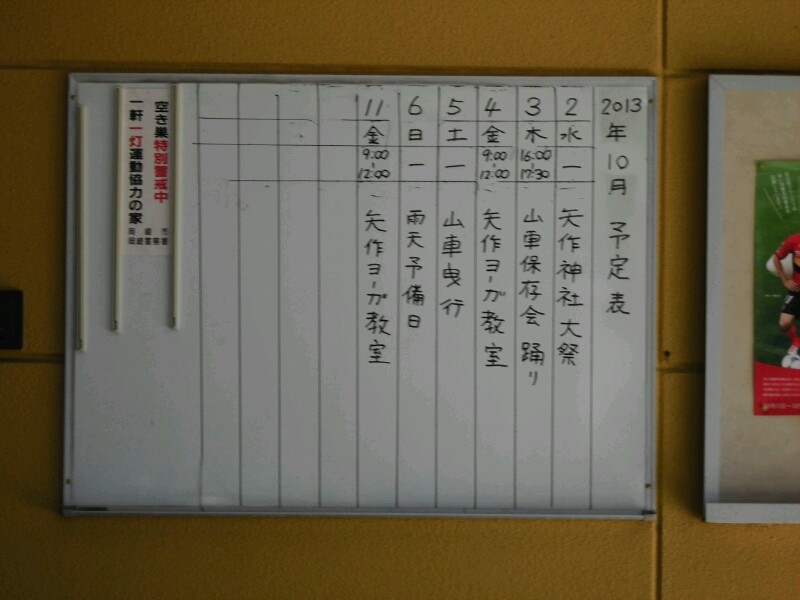 2013年10月 予定表
2 水 ― 矢作神社大祭
3 木 16:00-17:30 山車保存会踊り
4 金 9:00-12:00 矢作ヨーガ教室
5 土 ― 山車曳行
6 日 ― 雨天予備日
11 金 9:00-12:00 矢作ヨーガ教室
空き巣特別警戒中
一軒一灯運動協力の家
岡崎市
岡崎警察署